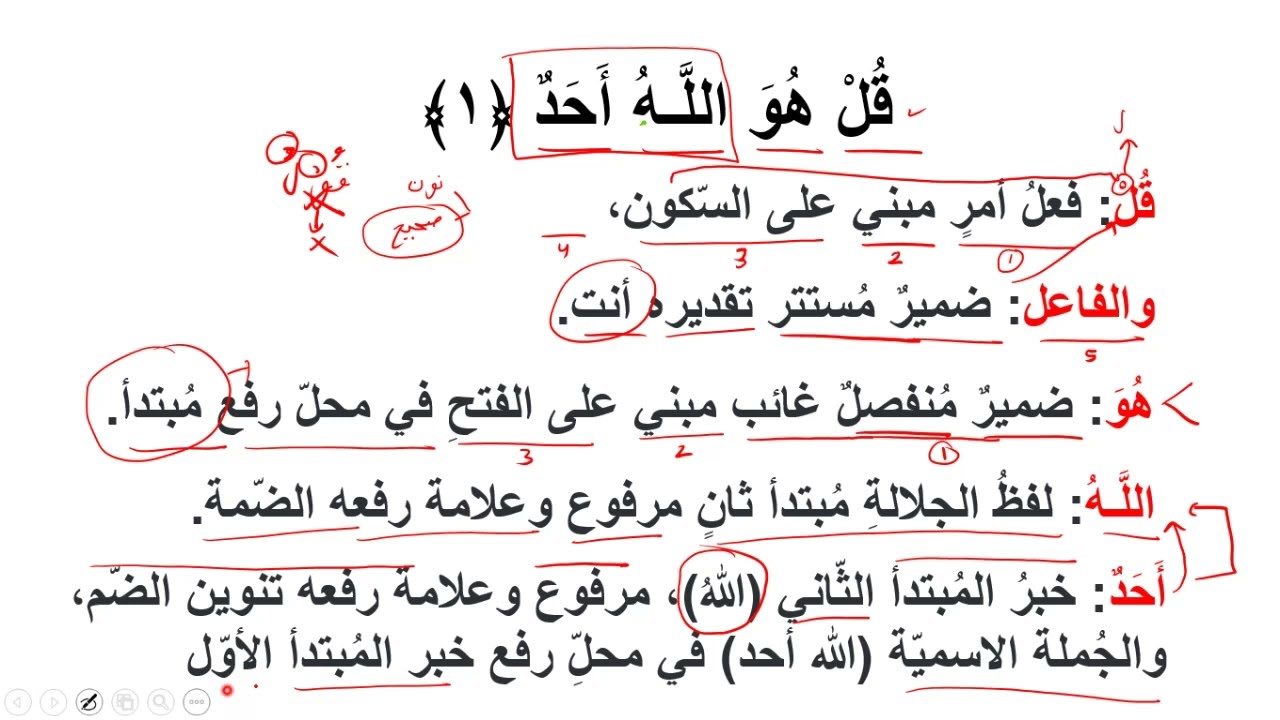 قُلْ هُوَ اللَّـهُ أَحَدٌ ﴿١﴾
قُلْ: فعلُ أمرٍ مبني على السّكون،
نون
صحيح
1 2 3 4
والفاعل: ضميرٌ مُستتر تقديره أنت.
5
هُوَ: ضميرٌ مُنفصلٌ غائب مبني على الفتحِ في محلّ رفع مُبتدأ.
1 2 3
اللَّـهُ: لفظُ الجلالةِ مُبتدأ ثانٍ مرفوع وعلامة رفعه الضّمة.
أَحَدٌ: خبرُ المُبتدأ الثّاني (اللهُ)، مرفوع وعلامة رفعه تنوين الضّم،
والجُملة الاسميّة (الله أحد) في محلِّ رفع خبر المُبتدأ الأوّل